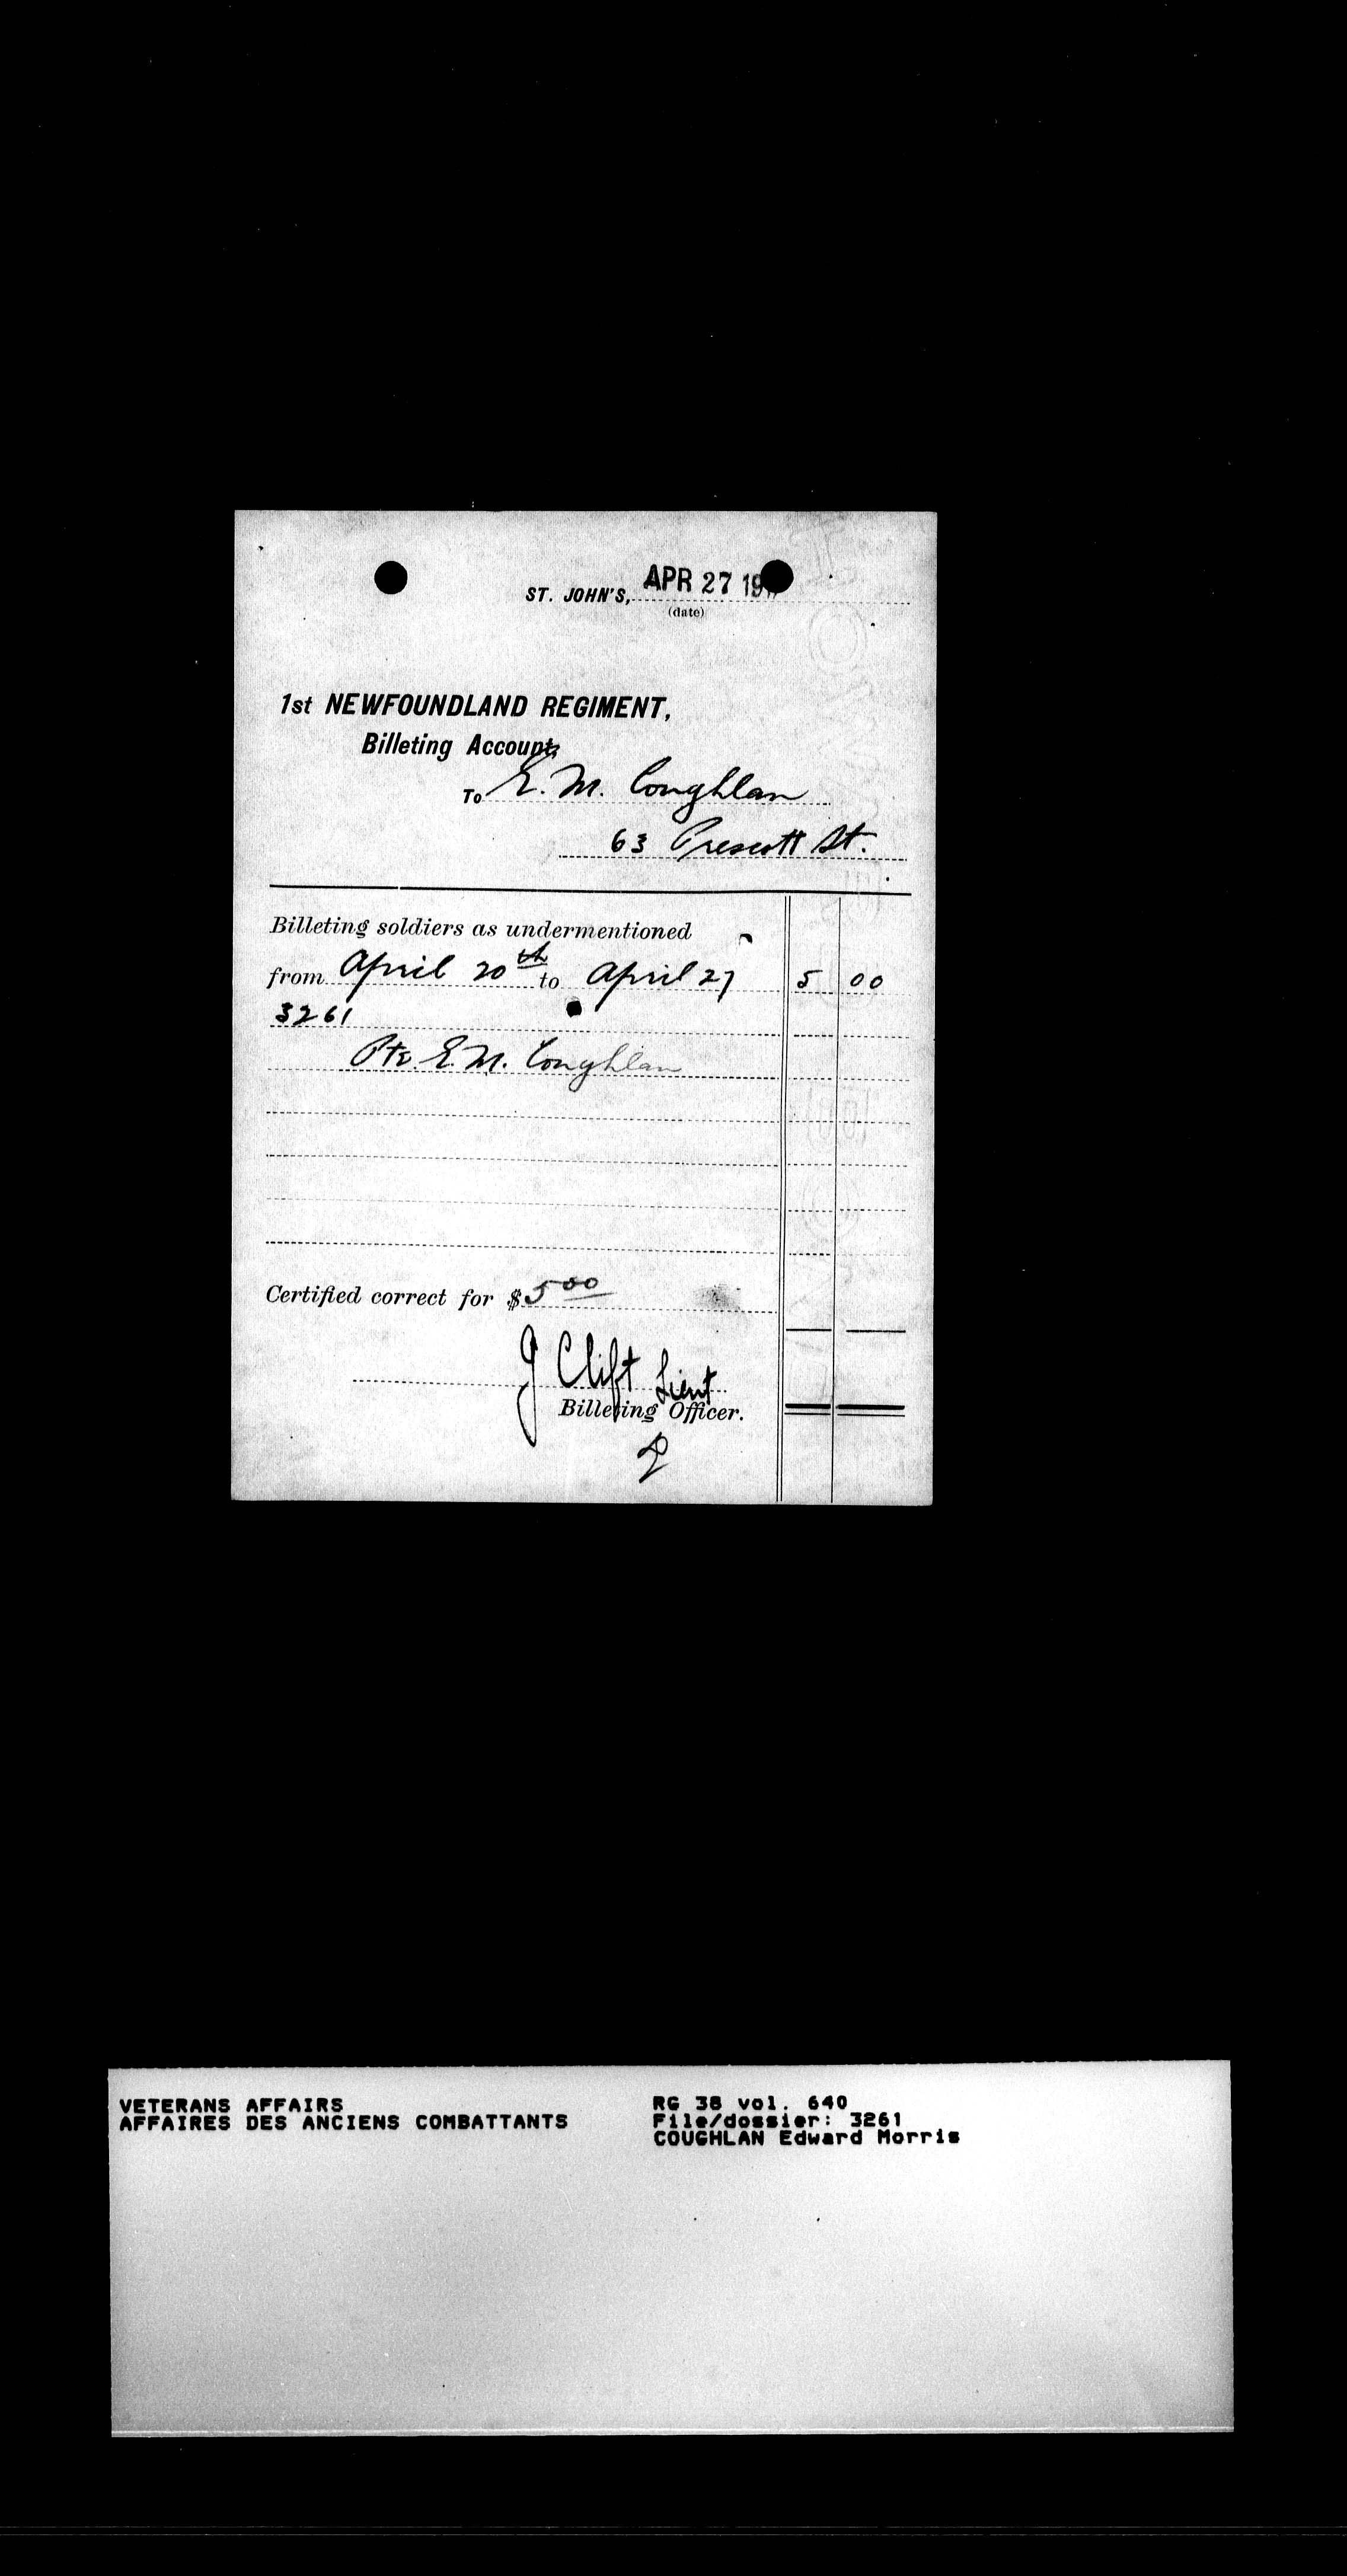 ST. JOHN'S, APR 27 19
(date)
1st NEWFOUNDLAND REGIMENT,
Billeting Account,
To E. M. Coughlan
63 Prescott St.
Billeting soldiers as undermentioned
from April 20th to April 27 5 00
3261
Pte E. M. Coughlan
Certified correct for $5 00
J Clift Lieut
Billeting Officer.
VETERANS AFFAIRS
AFFAIRES DES ANCIENS COMBATTANTS
RG 38 vol. 640
File/dossier: 3261
COUGHLAN Edward Morris